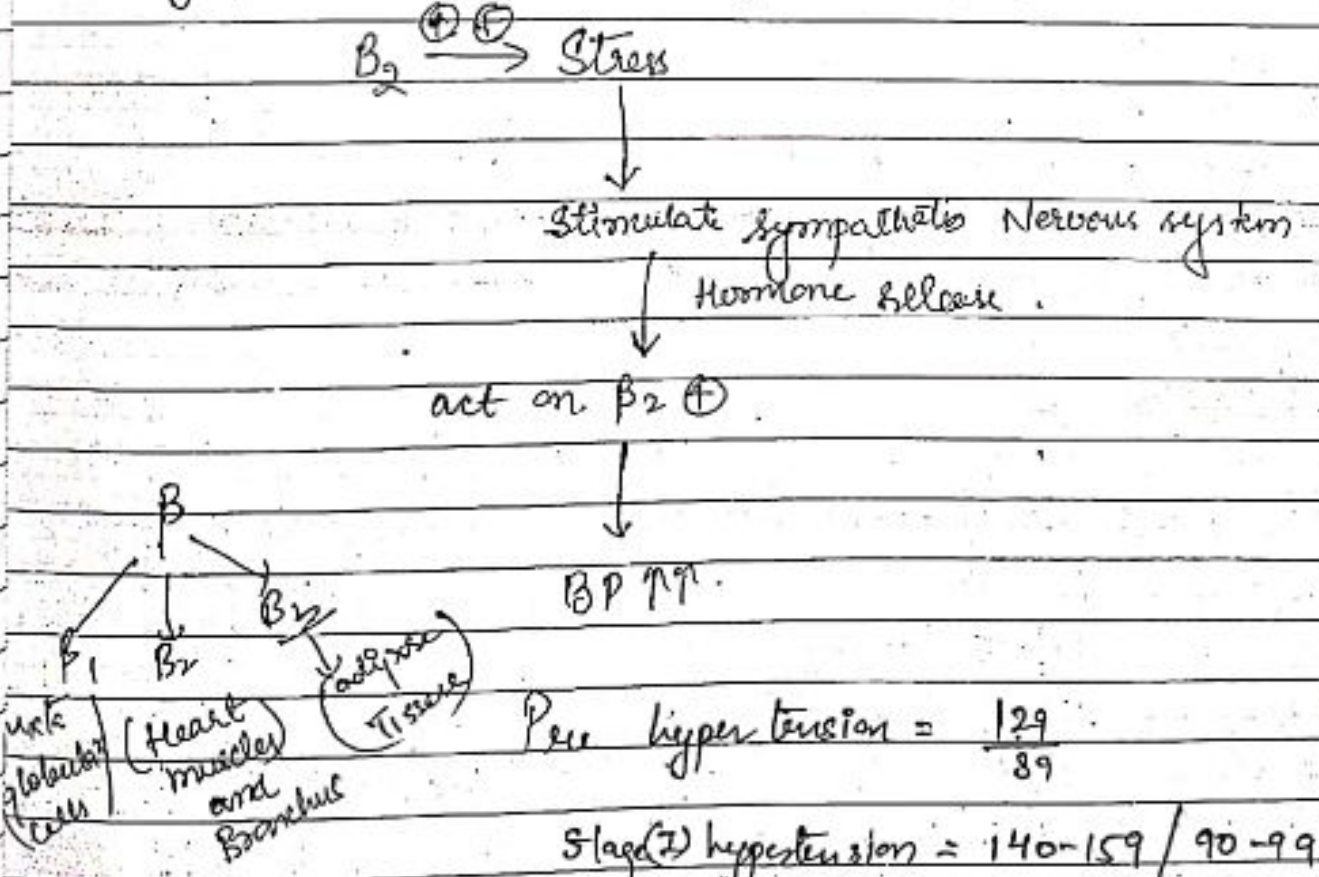 B2 ⊕ ⊕ → Stress
↓
Stimulate sympathetic Nervous system
↓ Hormone release .
act on β2 ⊕
↓
BP ↑↑.
β
β1 B2
(adipose Tissue)
(Heart muscles and Bronchus
cells
Pre hypertension = 129/89
Stage(I) hypertension = 140-159 / 90-99